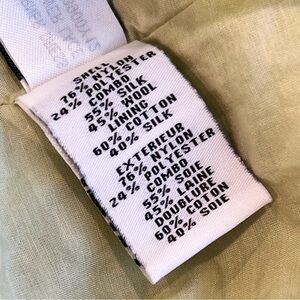 SHELL
76% NYLON
24% POLYESTER
COMBO
55% SILK
45% WOOL
LINING
60% COTTON
40% SILK
EXTERIEUR
76% NYLON
24% POLYESTER
COMBO
55% SOIE
45% LAINE
DOUBLURE
60% COTON
40% SOIE